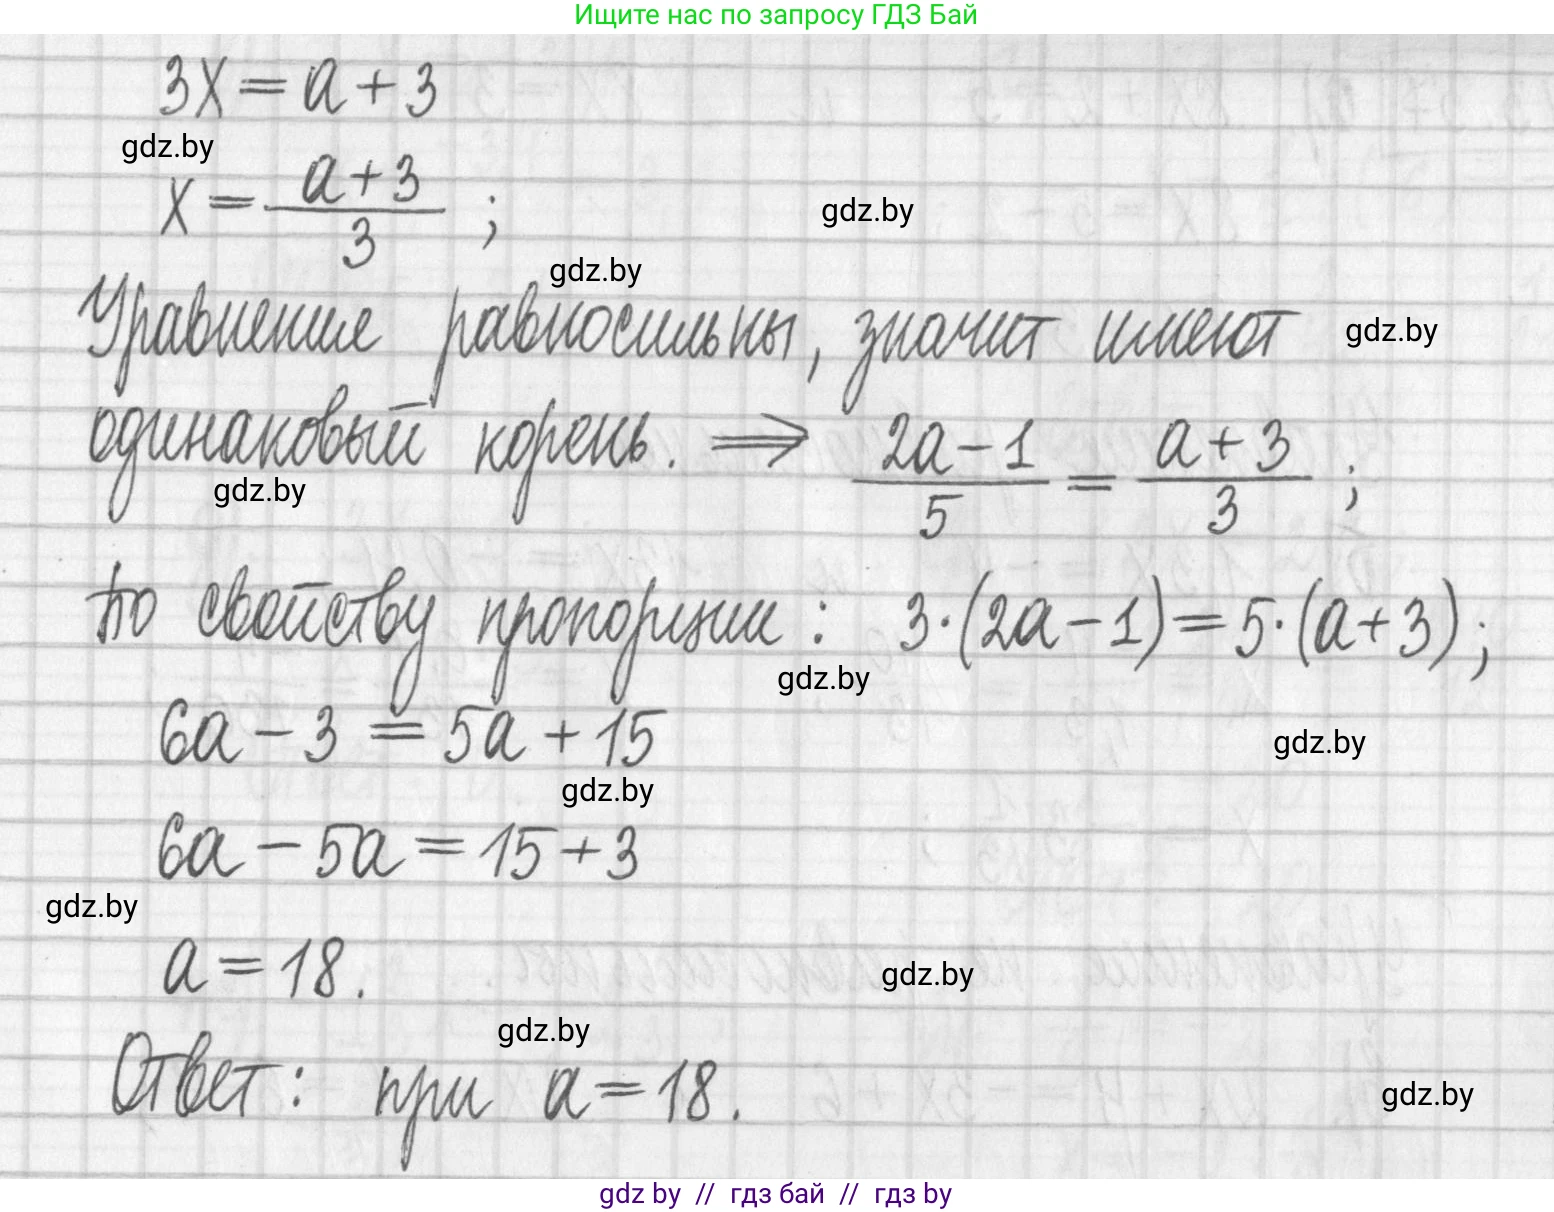 Ищите нас по запросу ГДЗ Бай
3x = a + 3
gdz.by
x = (a + 3)/3 ;
gdz.by
gdz.by
Уравнения равносильны, значит имеют
gdz.by
одинаковый корень. ⇒ (2a − 1)/5 = (a + 3)/3 ;
gdz.by
По свойству пропорции : 3·(2a − 1) = 5·(a + 3) ;
gdz.by
6a − 3 = 5a + 15
gdz.by
gdz.by
6a − 5a = 15 + 3
gdz.by
a = 18.
gdz.by
gdz.by
Ответ: при a = 18.
gdz.by
gdz by // гдз бай // гдз by